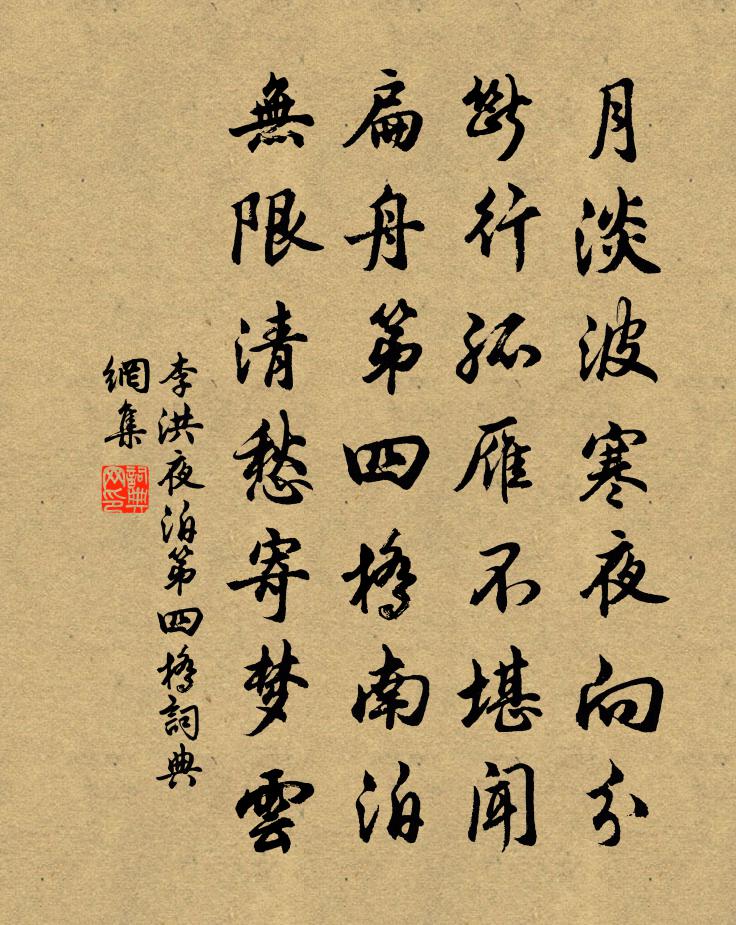 月淡波寒夜向分
斷行孤雁不堪聞
扁舟第四橋南泊
無限清愁寄梦雲
李洪夜泊第四橋詞典
網集
詞典
网印